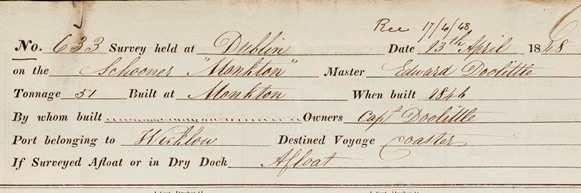 Rec 17/4/48
No. 633 Survey held at Dublin Date 13th April 1848
on the Schooner "Monkton" Master Edward Doolittle
Tonnage 51 Built at Monkton When built 1846
By whom built Owners Capt Doolittle
Port belonging to Wicklow Destined Voyage Coaster
If Surveyed Afloat or in Dry Dock Afloat